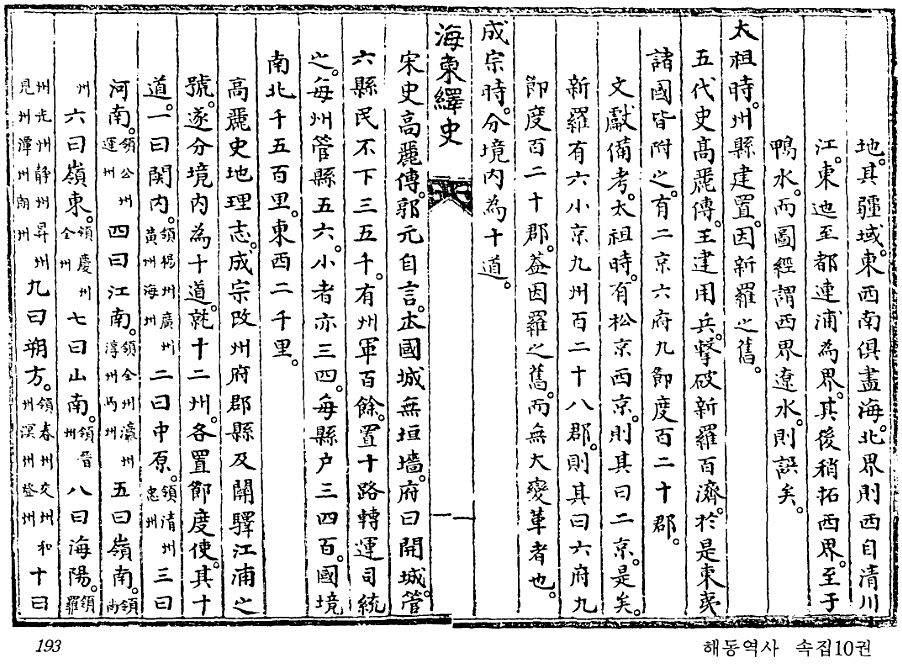 地。其疆域。東西南俱盡海。北界則西自清川
江。東迤至都連浦為界。其後稍拓西界。至于
鴨水。而圖經謂西界遼水。則誤矣。
太祖時。州縣建置。因新羅之舊。
五代史高麗傳。王建用兵。擊破新羅百濟。於是東夷
諸國皆附之。有二京六府九節度百二十郡。
文獻備考。太祖時。有松京西京。則其曰二京。是矣。
新羅有六小京九州百二十八郡。則其曰六府九
節度百二十郡。盖因羅之舊。而無大變革者也。
成宗時。分境内為十道。
海東繹史
宋史高麗傳。郭元自言。本國城無垣墻。府曰開城。管
六縣民不下三五千。有州軍百餘。置十路轉運司統
之。每州管縣五六。小者亦三四。每縣户三四百。國境
南北千五百里。東西二千里。
高麗史地理志。成宗改州府郡縣及關驛江浦之
號。遂分境内為十道。就十二州。各置節度使。其十
道。一曰関内。領楊州廣州黃州海州二曰中原。領清州忠州三曰
河南。領公州運州四曰江南。領全州瀛州淳州馬州五曰嶺南。領尚
州六曰嶺東。領慶州金州七曰山南。領晉州八曰海陽。領羅
州光州靜州昇州貝州潭州朗州九曰朔方。領春州交州和州溟州登州十曰
193
해동역사 속집10권